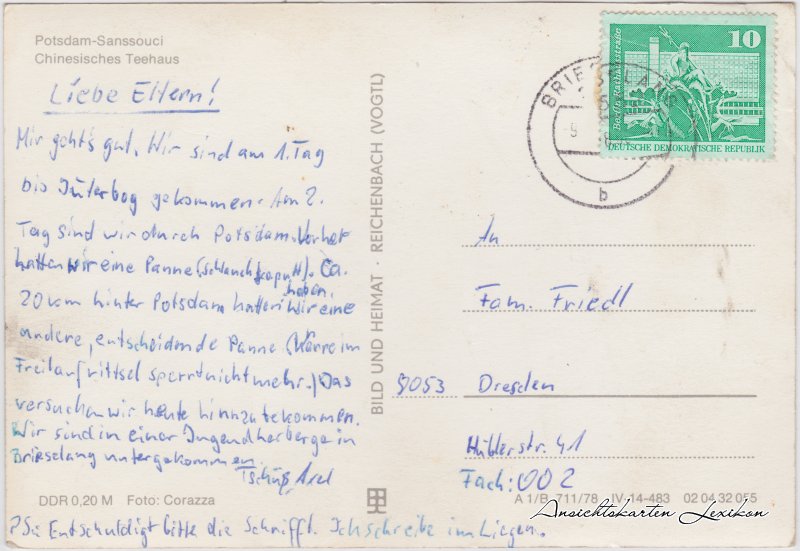 Potsdam-Sanssouci
Chinesisches Teehaus
Liebe Eltern!
Mir geht's gut. Wir sind am 1. Tag
bis Jüterbog gekommen. Am 2.
Tag sind wir durch Potsdam. Vorher
hatten wir eine Panne (Schlauch kaputt). Ca.
20 km hinter Potsdam hatten wir eine
andere, entscheidende Panne (
Freilauf rittsel sperrt nicht mehr.) Das
versuchen wir heute hinzubekommen.
Wir sind in einer Jugendherberge in
Brieselang untergekommen.
Tschüß Axel
PS: Entschuldigt bitte die Schrifft. Ich schreibe im Liegen.
DDR 0,20 M Foto: Corazza
BILD UND HEIMAT · REICHENBACH (VOGTL)
10
Berlin, Rathausstraße
DEUTSCHE DEMOKRATISCHE REPUBLIK
BRIESELANG
b
An
Fam. Friedl
8053 Dresden
Hüblerstr. 41
Fach: 002
A 1/B 711/78 IV-14-483 02 04 32 055
Ansichtskarten Lexikon